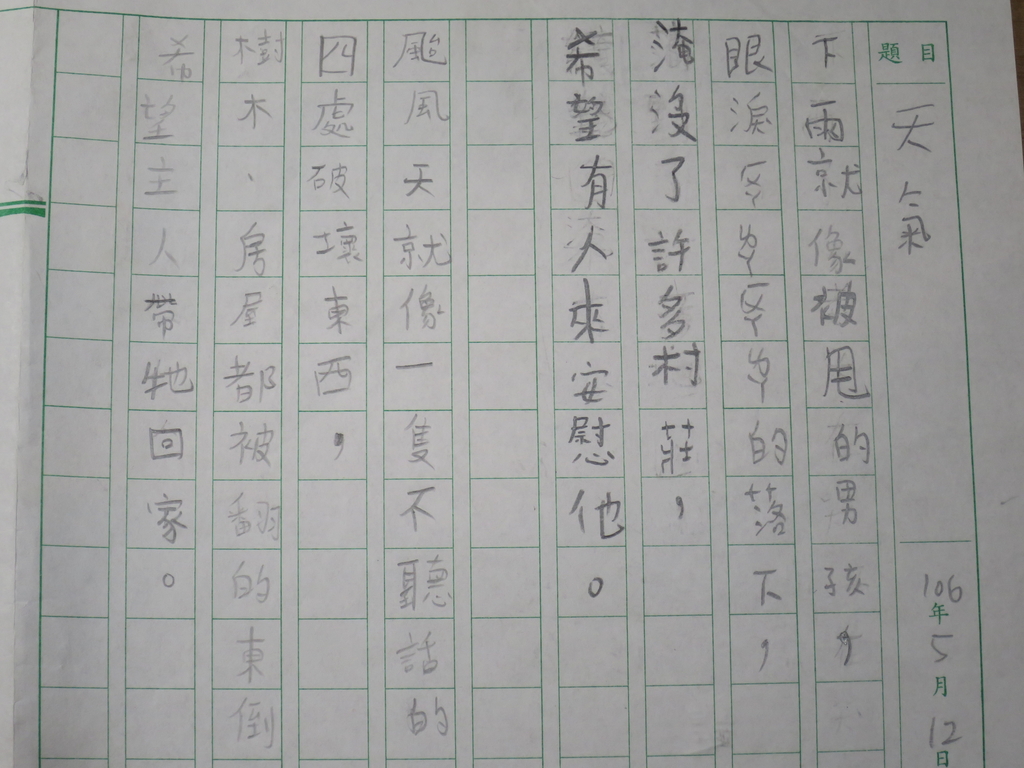 題目 天氣 106年5月12日
下雨就像被甩的男孩，
眼淚的落下，
淹沒了許多村莊，
希望有人來安慰他。
颱風天就像一隻不聽話的
四處破壞東西，
樹木、房屋都被翻的東倒
希望主人帶牠回家。